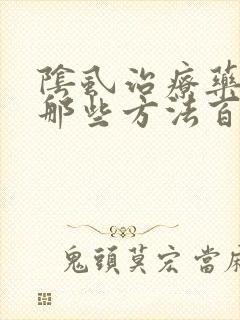 陰虱治療藥
那些方法百
鬼頭莫宏當